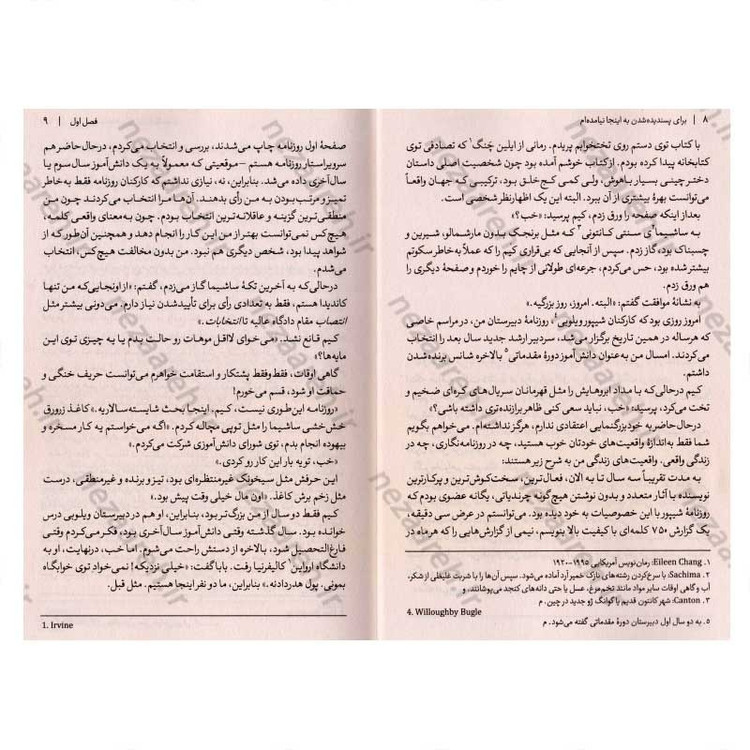 ۸ | برای پسندیده‌شدن به اینجا نیامده‌ام
با کتاب توی دستم روی تختخوابم پریدم. رمانی از ایلین چَنگ۱ که تصادفی توی
کتابخانه پیدا کرده بودم. از کتاب خوشم آمده بود چون شخصیت اصلی داستان
دختر چینی بسیار باهوش، ولی کمی کج‌خلق بود، ترکیبی که جهان واقعاً
می‌توانست بهرهٔ بیشتری از آن ببرد. البته این یک اظهارنظر شخصی است.
بعد از اینکه صفحه را ورق زدم، کیم پرسید: «خب؟»
به ساشیما۲ی سنتی کانتونی۳ که مثل برنجک بدون مارشمالو، شیرین و
چسبناک بود، گاز زدم. سپس از آنجایی که بی‌قراری کیم را که عملاً به‌خاطر سکوتم
بیشتر شده بود، حس می‌کردم، جرعه‌ای طولانی از چایم را خوردم و صفحهٔ دیگری را
هم ورق زدم.
به نشانهٔ موافقت گفتم: «البته. امروز، روز بزرگیه.»
امروز روزی بود که کارکنان شیپور ویلوبی۴ روزنامهٔ دبیرستان من، در مراسم خاصی
که هرساله در همین تاریخ برگزار می‌شد، سردبیر ارشد جدید سال بعد را انتخاب
می‌کردند. امسال من به‌عنوان دانش‌آموز دورهٔ مقدماتی۵ بالاخره شانس برنده‌شدن
داشتم.
کیم درحالی‌که با مداد ابروهایش را مثل قهرمانان سریال‌های کره‌ای ضخیم و
تخت می‌کرد، پرسید: «خب، نباید سعی کنی ظاهر برازنده‌تری داشته باشی؟»
درحال حاضر به خودبزرگنمایی اعتقادی ندارم، هرگز نداشته‌ام. می‌خواهم بگویم
شما فقط به‌اندازهٔ واقعیت‌های خودتان خوب هستید، چه در روزنامه‌نگاری، چه در
زندگی واقعی. واقعیت‌های زندگی من به شرح زیر هستند:
به مدت تقریباً سه سال تا به الان، فعال‌ترین، سخت‌کوش‌ترین و پرکارترین
نویسنده با آثار متعدد و بدون نوشتن هیچ‌گونه چرندیاتی، یگانه عضوی بودم که
روزنامهٔ شیپور با این خصوصیات به خود دیده بود. می‌توانستم در عرض سی دقیقه،
یک گزارش ۷۵۰ کلمه‌ای با کیفیت بالا بنویسم، نیمی از گزارش‌هایی را که هر ماه در
۱. Eileen Chang: رمان‌نویس آمریکایی ۱۹۹۵-۱۹۲۰
۲. Sachima: با سرخ‌کردن رشته‌های نازک خمیر آرد آماده می‌شود. سپس آن‌ها را با شربت غلیظی از شکر،
آب و گاهی اوقات سایر مواد مانند تخم‌مرغ، عسل یا حتی دانه‌های کنجد می‌پوشانند، و
۳. Canton: شهر کانتون قدیم یا گوانگ ژو جدید در چین. م
4. Willoughby Bugle
۵. به دو سال اول دبیرستان دورهٔ مقدماتی گفته می‌شود. م
فصل اول | ۹
صفحهٔ اول روزنامه چاپ می‌شدند، بررسی و انتخاب می‌کردم، درحال حاضر هم
سرویراستار روزنامه هستم – موقعیتی که معمولاً به یک دانش‌آموز سال سوم یا
سال آخری داده می‌شد. بنابراین، نه، نیازی نداشتم که کارکنان روزنامه فقط به‌خاطر
تمیز و مرتب‌بودن به من رأی بدهند. آن‌ها مرا انتخاب می‌کردند چون من
منطقی‌ترین گزینه و عاقلانه‌ترین انتخاب بودم. چون به‌معنای واقعی کلمه،
هیچ‌کس نمی‌توانست بهتر از من این کار را انجام دهد و همچنین آن‌طور که از
شواهد پیدا بود، شخص دیگری هم نبود. من بدون مخالفت هیچ‌کس، انتخاب
می‌شدم.
درحالی‌که به آخرین تکهٔ ساشیما گاز می‌زدم، گفتم: «از اونجایی‌که من تنها
کاندیدا هستم، فقط به تعدادی رأی برای تأییدشدن نیاز دارم. می‌دونی بیشتر مثل
انتصاب مقام دادگاه عالیه تا انتخابات.»
کیم قانع نشد. «می‌خوای لااقل موهات رو حالت بدم یا یه چیزی توی این
مایه‌ها؟»
گاهی اوقات، فقط‌وفقط پشتکار و استقامت خواهرم می‌توانست حریف خنگی و
حماقت او شود، قسم می‌خورم!
«روزنامه این‌طوری نیست، کیم. اینجا بحث شایسته‌سالاریه.» کاغذ زرورق
خش‌خشی ساشیما را مثل توپی مچاله کردم. «اگه می‌خواستم یه کار مسخره و
بیهوده انجام بدم، توی شورای دانش‌آموزی شرکت می‌کردم.»
«خب، تو یه بار این کار رو کردی.»
این حرفش مثل سیخونک غیرمنتظره‌ای بود، تیز و برنده و غیرمنطقی، درست
مثل زخم برش کاغذ. «اون مال خیلی وقت پیش بود.»
کیم فقط دو سال از من بزرگ‌تر بود، بنابراین، او هم در دبیرستان ویلوبی درس
خوانده بود. سال گذشته وقتی دانش‌آموز سال آخری بود، فکر می‌کردم وقتی
فارغ‌التحصیل شود، بالاخره از دستش راحت می‌شوم. اما خب، درنهایت، او به
دانشگاه ارواین۱ کالیفرنیا رفت. بابا گفت: «خیلی نزدیکه! نمی‌خواد توی خوابگاه
بمونی. پول هدردادنه.» بنابراین، ما دو نفر اینجا هستیم. مثل قبل.
1. Irvine
nezaareh.ir